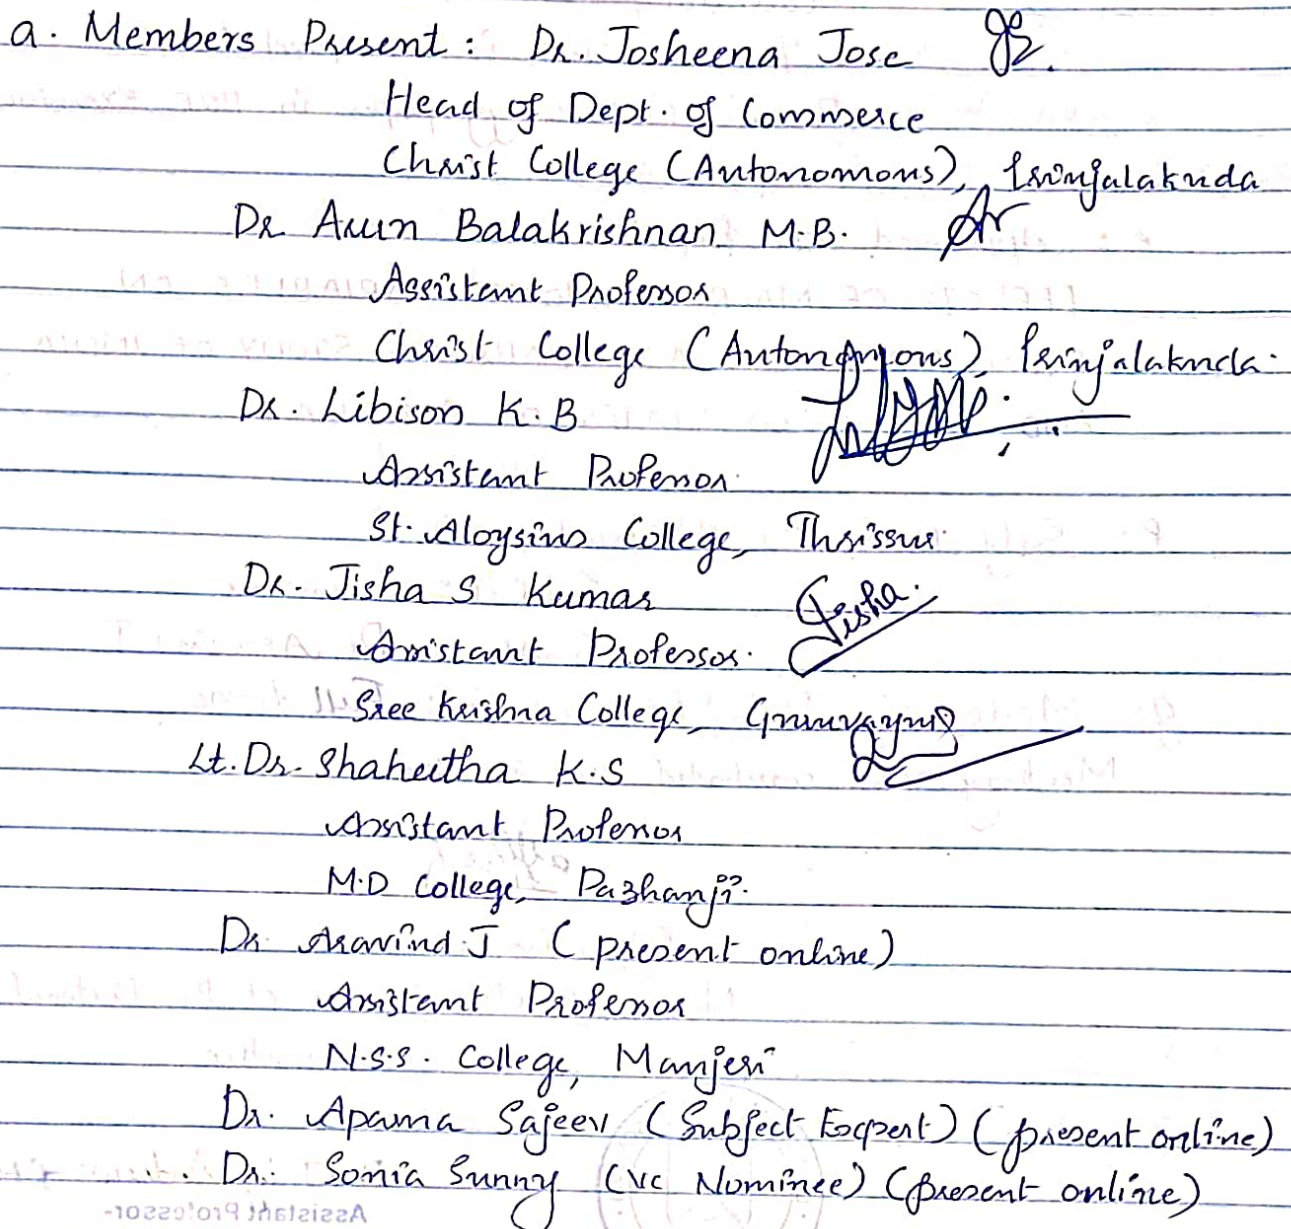 a. Members Present : Dr. Josheena Jose
Head of Dept. of Commerce
Christ College (Autonomous), Irinjalakuda
Dr Arun Balakrishnan M.B.
Assistant Professor
Christ College (Autonomous), Irinjalakuda.
Dr. Libison K.B
Assistant Professor
St. Aloysius College, Thrissur
Dr. Jisha S Kumar Jisha.
Assistant Professor.
Sree Krishna College, Guruvayur
Lt. Dr. Shaheetha K.S
Assistant Professor
M.D College, Pazhanji.
Dr. Aravind J (present online)
Assistant Professor
N.S.S. College, Manjeri
Dr. Aparna Sajeev (Subject Expert) (present online)
Dr. Sonia Sunny (VC Nominee) (present online)
Assistant Professor-